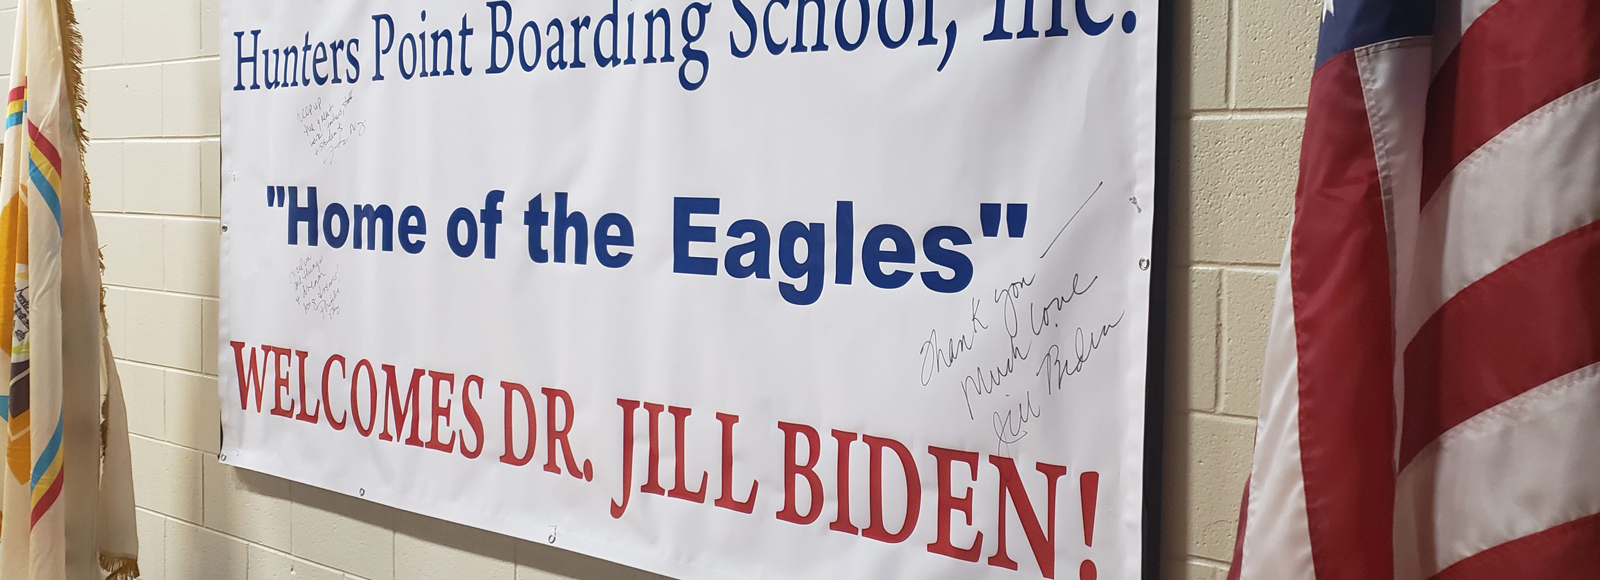 Hunters Point Boarding School, Inc.
Keep up
the great
"Home of the Eagles"
Thank you —
Much love
Jill Biden
WELCOMES DR. JILL BIDEN!